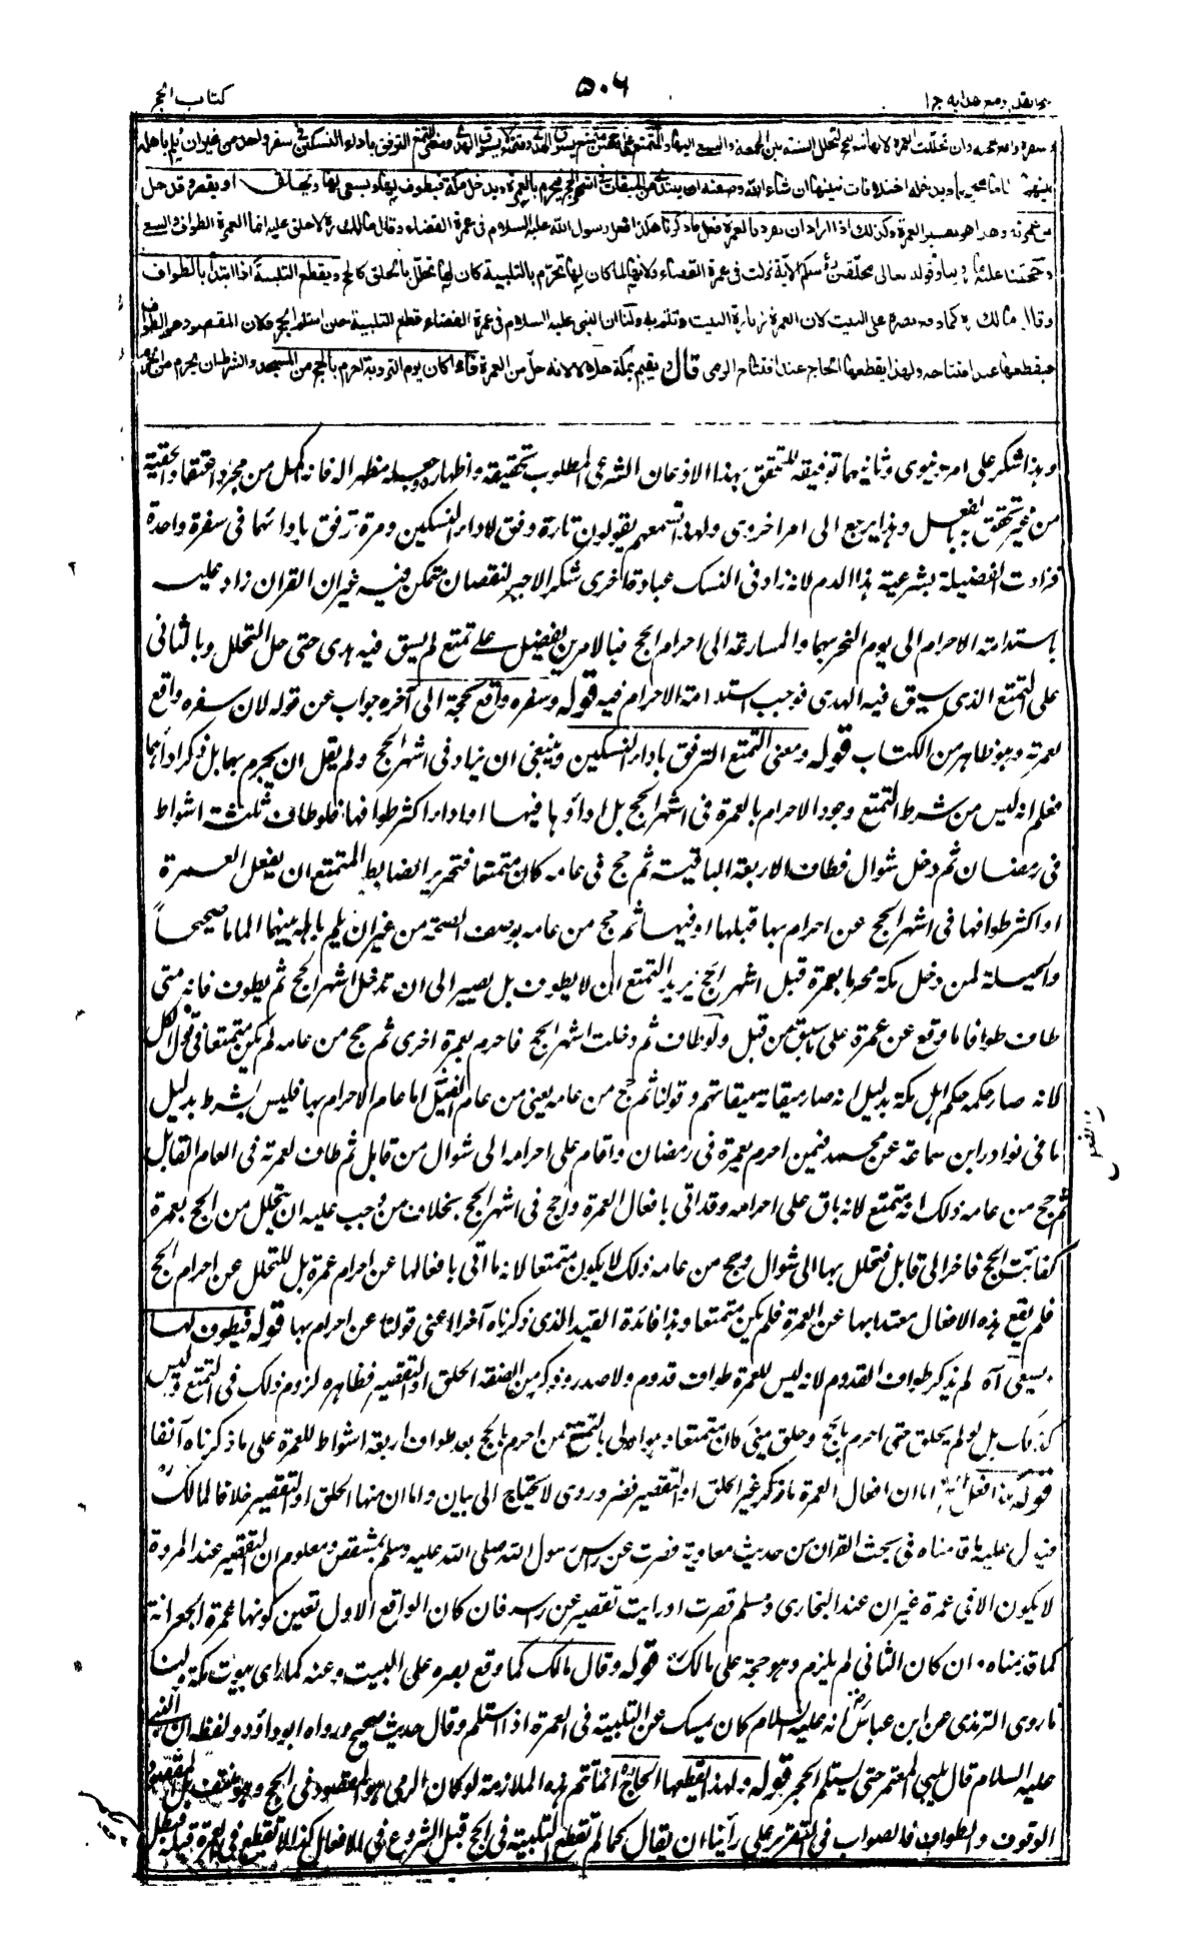 فتح القدير مع هدايه ج ا ٥٠٦ كتاب الحج
وسفره واقع لحجته وان تخللت العمرة لانها تبع للحج كتخلل السنة بين الجمعة والسعي اليها والمتمتع على وجهين متمتع يسوق الهدى ومتمتع لا يسوق الهدى ومعنى التمتع الترفق باداء النسكين في سفر واحد من غير ان يلم باهله
بينهما الماما صحيحا ويدخله اختلافات نبينها ان شاء الله وصفته ان يبتدئ من الميقات في اشهر الحج فيحرم بالعمرة ويدخل مكة فيطوف لها ويسعى لها ويحلق او يقصر وقد حل
من عمرته وهذا هو تفسير العمرة وكذلك اذا اراد ان يفرد بالعمرة فعل ما ذكرنا هكذا فعل رسول الله عليه السلام في عمرة القضاء وقال مالك ره لا حلق عليه انما العمرة الطواف والسعي
وحجتنا عليه ما روينا وقوله تعالى محلقين رءوسكم الآية نزلت في عمرة القضاء ولانها لما كان لها تحرم بالتلبية كان لها تحلل بالحلق كالحج ويقطع التلبية اذا ابتدأ بالطواف
وقال مالك ره كما وقع بصره على البيت لان العمرة زيارة البيت وتتم به ولنا ان النبي عليه السلام في عمرة القضاء قطع التلبية حين استلم الحجر ولان المقصود هو الطواف
فيقطعها عند افتتاحه ولهذا يقطعها الحاج عند افتتاح الرمي قال ويقيم بمكة حلالا لانه حل من العمرة فاذا كان يوم التروية احرم بالحج من المسجد والشرط ان يحرم من الحرم
وهذا شكر على امر دنيوى وثانيهما توفيقه للتحقق بهذا الاذعان الشرعى المطلوب تحقيقه واظهاره وجعله مظهرا له فانه اكمل من مجرد اعتقاد الحقية
من غير تحقق به بالفعل وهذا يرجع الى امر اخروى ولهذا تسمعهم يقولون تارة وفق لاداء النسكين ومرة ترفق باداءهما فى سفرة واحدة
فزادت الفضيلة بشرعية هذا الدم لانه زاد فى النسك عبادة اخرى شكرا لا جبر النقصان متمكن فيه غير ان القران زاد عليه
باستدامة الاحرام الى يوم النحر بهما والمسارعة الى احرام الحج فبالامرين يفضل على تمتع لم يسق فيه هدى حتى حل التحلل وبالثانى
على التمتع الذى سيق فيه الهدى فوجب استدامة الاحرام فيه قوله وسفره واقع لحجته الى آخره جواب عن قوله لان سفره واقع
لعمرته وهو ظاهر من الكتاب قوله ومعنى التمتع الترفق باداء النسكين وينبغى ان يزاد فى اشهر الحج ولم يقل ان يحرم بهما بل ذكر اداءهما
فعلم انه ليس من شرط التمتع وجود الاحرام بالعمرة فى اشهر الحج بل اداؤها فيها او اداء اكثر طوافها فلو طاف ثلثة اشواط
فى رمضان ثم دخل شوال فطاف الاربعة الباقية ثم حج فى عامه كان متمتعا فتحرير الضابط للمتمتع ان يفعل العمرة
او اكثر طوافها فى اشهر الحج عن احرام بها قبلها او فيها ثم حج من عامه بوصف الصحة من غير ان يلم باهله بينهما الماما صحيحاً
والحيلة لمن دخل مكة محرما بعمرة قبل اشهر الحج يريد التمتع ان لا يطوف بل يصبر الى ان تدخل اشهر الحج ثم يطوف فانه متى
طاف طوافا ما وقع عن عمرة على ما سبق من قبل ولو طاف ثم دخلت اشهر الحج فاحرم بعمرة اخرى ثم حج من عامه لم يكن متمتعا فى قول الكل
لانه صار حكمه حكم اهل مكة بدليل انه صار ميقاته ميقاتهم وقولنا ثم حج من عامه يعنى من عام الفعل اما عام الاحرام بها فليس بشرط بدليل
ما فى نوادر ابن سماعة عن محمد فيمن احرم بعمرة فى رمضان واقام على احرامه الى شوال من قابل ثم طاف لعمرته فى العام القابل
ثم حج من عامه ذلك انه متمتع لانه باق على احرامه وقد اتى بافعال العمرة والحج فى اشهر الحج بخلاف من وجب عليه ان يتحلل من الحج بعمرة
كفائت الحج فاخر الى قابل فتحلل بها الى شوال وحج من عامه ذلك لا يكون متمتعا لانه ما اتى بافعالها عن احرام عمرة بل للتحلل عن احرام الحج
فلم يقع هذه الافعال معتدا بها عن العمرة فلم يكن متمتعا وهذا فائدة القيد الذى ذكرناه آخرا اعنى قولنا عن احرام بها قوله فيطوف لها
ويسعى آه لم يذكر طواف القدوم لانه ليس للعمرة طواف قدوم ولا صدر وذكر من الصفة الحلق او التقصير فظاهره لزوم ذلك فى التمتع وليس
كذلك بل لو لم يحلق حتى احرم بالحج وحلق بمنى كان متمتعا وهو اولى بالتمتع ممن احرم بالحج بعد طواف اربعة اشواط للعمرة على ما ذكرناه آنفا
قوله هكذا فعل اما ان افعال العمرة ما ذكر غير الحلق او التقصير فضرورى لا يحتاج الى بيان واما ان منها الحلق او التقصير خلافا لمالك
فيدل عليه ما قدمناه فى بحث القران من حديث معاوية قصرت عن راس رسول الله صلى الله عليه وسلم بمشقص ومعلوم ان التقصير عند المروة
لا يكون الا فى عمرة غير ان عند البخارى ومسلم قصرت او رايت تقصير عن راسه فان كان الواقع الاول تعين كونها عمرة الجعرانة
كما قدمناه وان كان الثانى لم يلزم وهو حجة على مالك قوله وقال مالك كما وقع بصره على البيت وعنه كما راى بيوت مكة ولنا
ما روى الترمذى عن ابن عباس رض انه عليه السلام كان يمسك عن التلبية فى العمرة اذا استلم وقال حديث صحيح ورواه ابو داؤد ولفظه ان النبى
عليه السلام قال يلبى المعتمر حتى يستلم الحجر قوله ولهذا يقطعها الحاج انما تتم هذه الملازمة لو كان الرمى هو المقصود فى الحج وهو منتف بل المقصود
الوقوف والطواف فالصواب فى التقرير على رأينا ان يقال كما لم تقطع التلبية فى الحج قبل الشروع فى الافعال كذا لا تقطع فى العمرة قبله فبطل